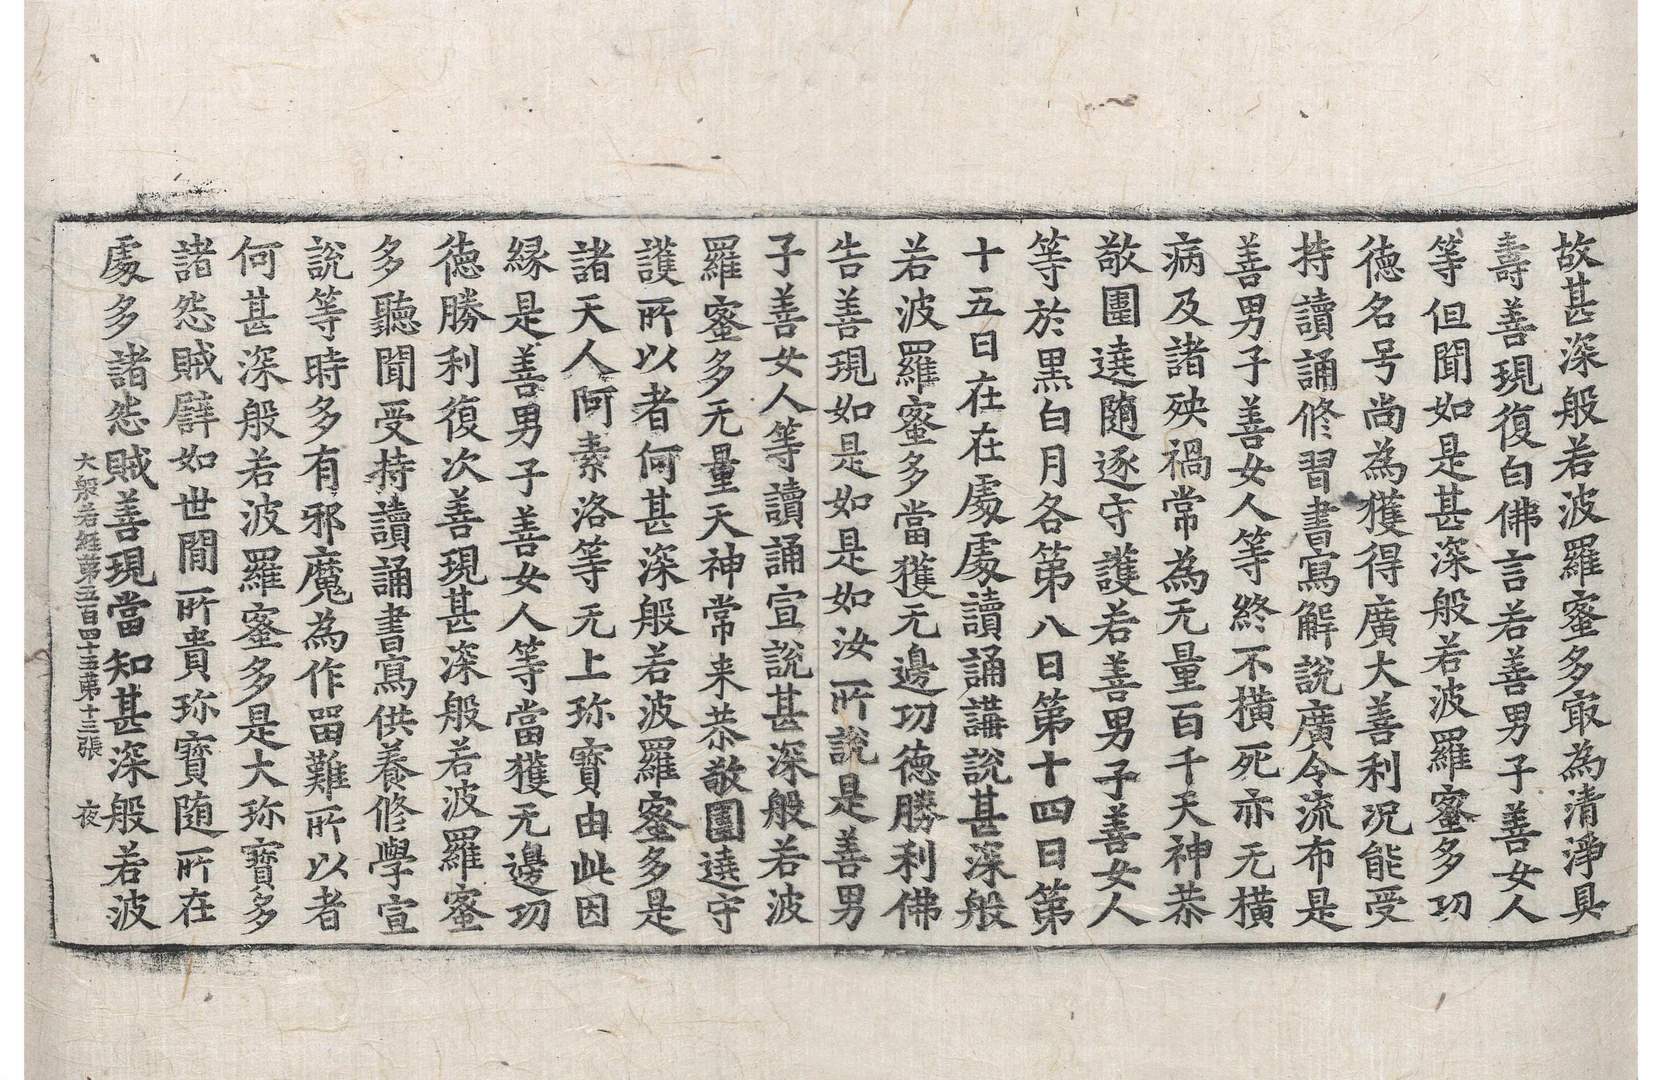 故甚深般若波羅蜜多㝡為清淨具
壽善現復白佛言若善男子善女人
等但聞如是甚深般若波羅蜜多功
德名号尚為獲得廣大善利況能受
持讀誦修習書寫解說廣令流布是
善男子善女人等終不橫死亦无橫
病及諸殃禍常為无量百千天神恭
敬圍遶隨逐守護若善男子善女人
等於黑白月各第八日第十四日第
十五日在在處處讀誦講說甚深般
若波羅蜜多當獲无邊功德勝利佛
告善現如是如是如汝所說是善男
子善女人等讀誦宣說甚深般若波
羅蜜多无量天神常来恭敬圍遶守
護所以者何甚深般若波羅蜜多是
諸天人阿素洛等无上珎寶由此因
緣是善男子善女人等當獲无邊功
德勝利復次善現甚深般若波羅蜜
多聽聞受持讀誦書寫供養修學宣
說等時多有邪魔為作留難所以者
何甚深般若波羅蜜多是大珎寶多
諸怨賊譬如世間所貴珎寶随所在
處多諸怨賊善現當知甚深般若波
大般若経第五百四十五第十三張 夜